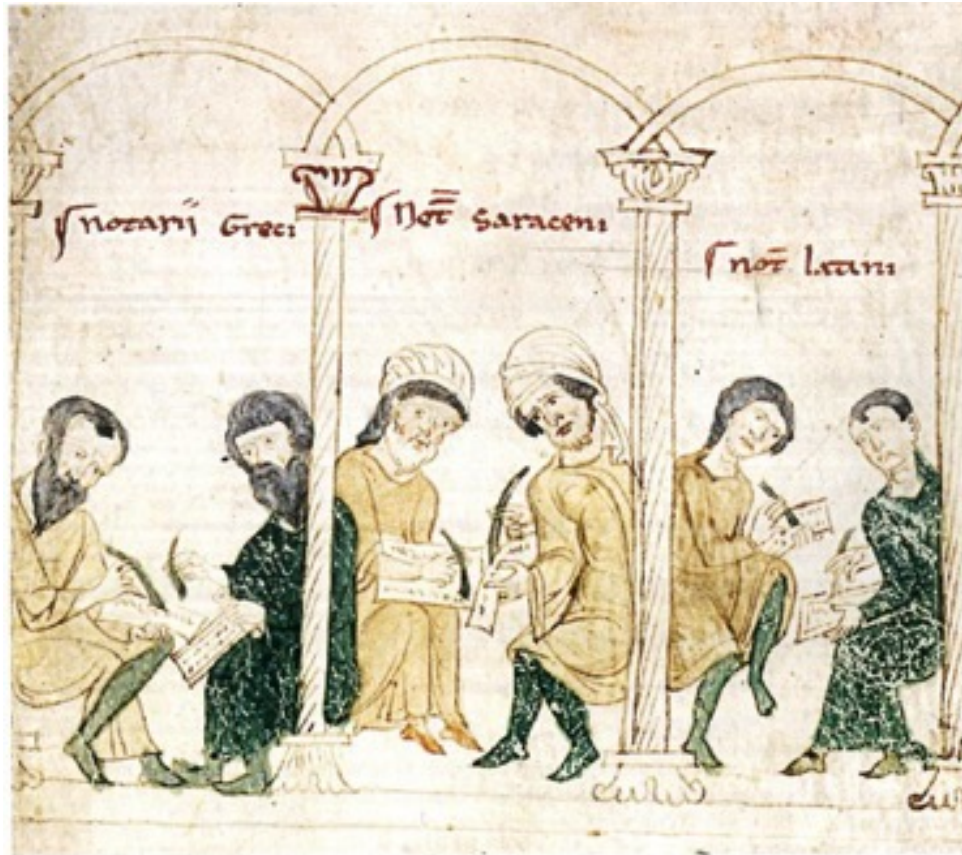 notarii Greci
Not Saraceni
not latini